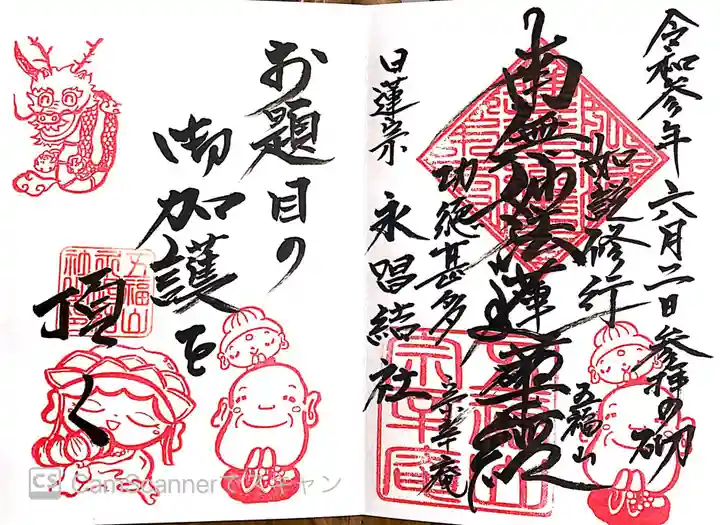 令和参年六月二日参拝の砌
如説修行
五福山
南無妙法蓮華経
功徳甚多
宗幸庵
日蓮宗 永昌結社
お題目の
御加護を
頂く
CS CamScannerでスキャン